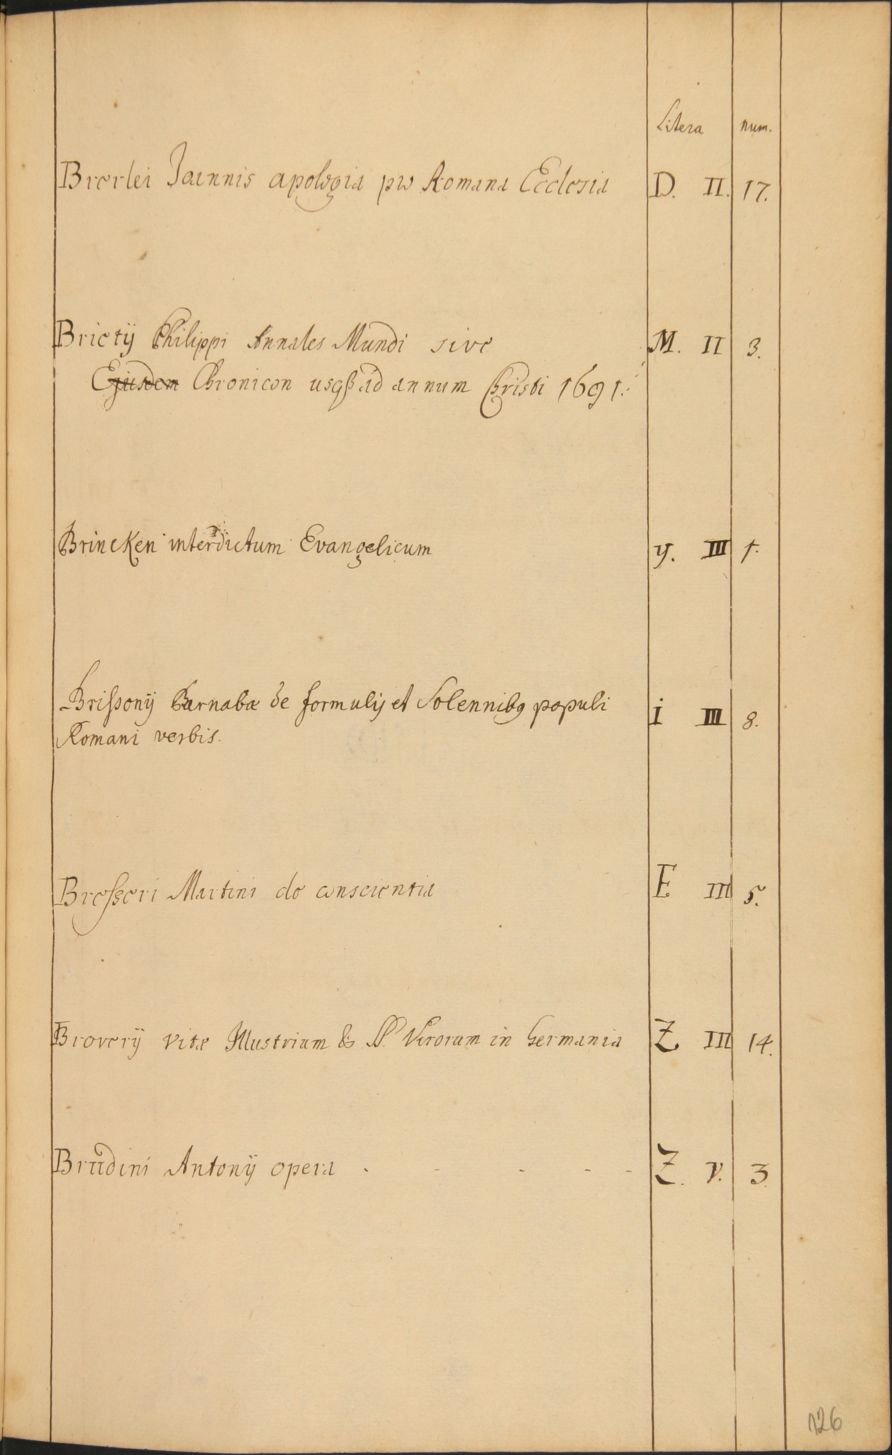 Litera num.
Brerlei Joannis apologia pro Romana Ecclesia D. II. 17.
Brietÿ Philippi Annales Mundi sive M. II 3.
Ejusdem Chronicon usqȝ ad annum Christi 1691.
Brincken interdictum Evangelicum y. III 1.
Brissonÿ Barnabæ de formulis et Solennibꝰ populi i III 8.
Romani verbis.
Bresseri Martini de conscientia E III 5.
Browerÿ vitæ Illustrium & SS. Virorum in Germania Z III 14.
Brudini Antonÿ opera - - - - Z. V. 3
126